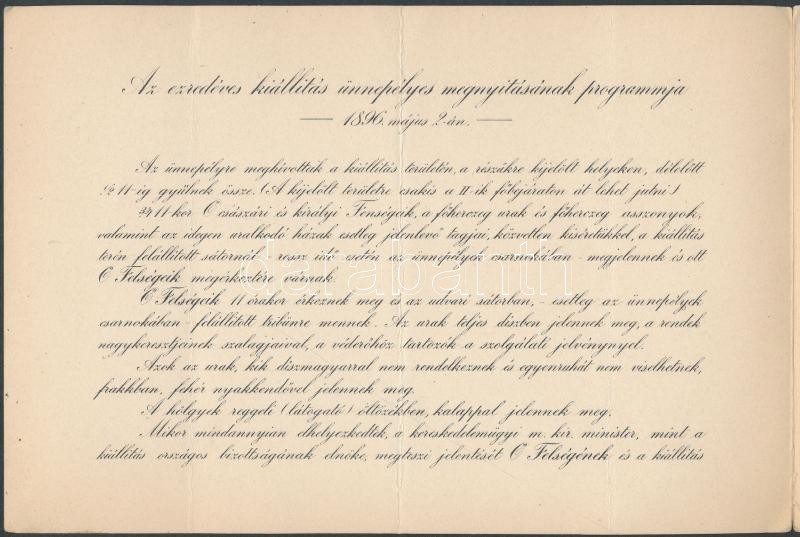 Az ezredéves kiállitás ünnepélyes megnyitásának programmja
1896. május 2-án.
Az ünnepélyre meghivottak a kiállitás területén, a részükre kijelölt helyeken, délelőtt
½11-ig gyülnek össze. (A kijelölt területre csakis a II-ik főbejáraton át lehet jutni.)
¾11-kor Ő császári és királyi Fenségeik, a főherczeg urak és főherczeg asszonyok,
valamint az idegen uralkodó házak esetleg jelenlevő tagjai, közvetlen kiséretükkel, a kiállitás
terén felállitott sátornál - rossz idő esetén az ünnepélyek csarnokában - megjelennek és ott
Ő Felségeik megérkeztére várnak.
Ő Felségeik 11 órakor érkeznek meg és az udvari sátorban, - esetleg az ünnepélyek
csarnokában - felállitott tribünre mennek. Az urak teljes diszben jelennek meg, a rendek
nagykeresztjeinek szalagjaival, a véderőhöz tartozók a szolgálati jelvénynyel.
Azok az urak, kik diszmagyarral nem rendelkeznek és egyenruhát nem viselhetnek,
frakkban, fehér nyakkendővel jelennek meg.
A hölgyek reggeli (látogató) öltözékben, kalappal jelennek meg.
Mikor mindannyian elhelyezkedtek, a kereskedelemügyi m. kir. minister, mint a
kiállitás országos bizottságának elnöke, megteszi jelentését Ő Felségének és a kiállitás
darabanth